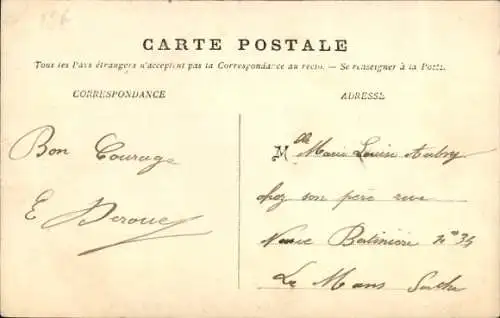 CARTE POSTALE
Tous les Pays étrangers n'acceptent pas la Correspondance au recto. — Se renseigner à la Poste.
CORRESPONDANCE
ADRESSE
Bon Courage
E
Mlle Marie Louise Aubry
chez son père rue
n° 35
Le Mans Sarthe